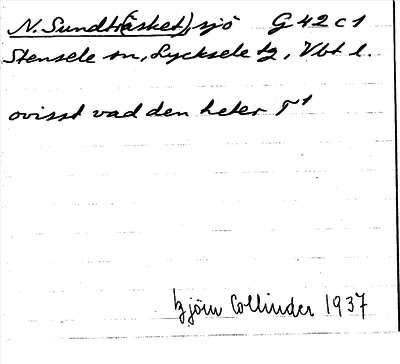 N. Sundt(räsket), sjö G 42 c 1
Stensele sn, Lycksele tg, Vbt l.
ovisst vad den heter T¹
björn Collinder 1937